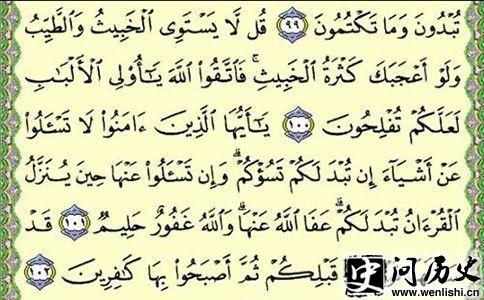 تُبْدُونَ وَمَا تَكْتُمُونَ ٩٩ قُل لَّا يَسْتَوِى ٱلْخَبِيثُ وَٱلطَّيِّبُ
وَلَوْ أَعْجَبَكَ كَثْرَةُ ٱلْخَبِيثِ ۚ فَٱتَّقُوا۟ ٱللَّهَ يَـٰٓأُو۟لِى ٱلْأَلْبَـٰبِ
لَعَلَّكُمْ تُفْلِحُونَ ١٠٠ يَـٰٓأَيُّهَا ٱلَّذِينَ ءَامَنُوا۟ لَا تَسْـَٔلُوا۟
عَنْ أَشْيَآءَ إِن تُبْدَ لَكُمْ تَسُؤْكُمْ وَإِن تَسْـَٔلُوا۟ عَنْهَا حِينَ يُنَزَّلُ
ٱلْقُرْءَانُ تُبْدَ لَكُمْ عَفَا ٱللَّهُ عَنْهَا ۗ وَٱللَّهُ غَفُورٌ حَلِيمٌ ١٠١ قَدْ
قَبْلِكُمْ ثُمَّ أَصْبَحُوا۟ بِهَا كَـٰفِرِينَ ١٠٢
问历史
www.wenlishi.cn